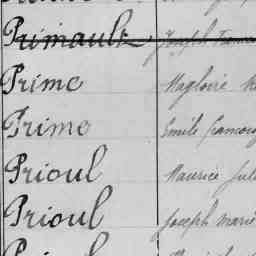 Primault Joseph
Prime Magloire
Prime Emile françois
Prioul Maurice
Prioul Joseph marie